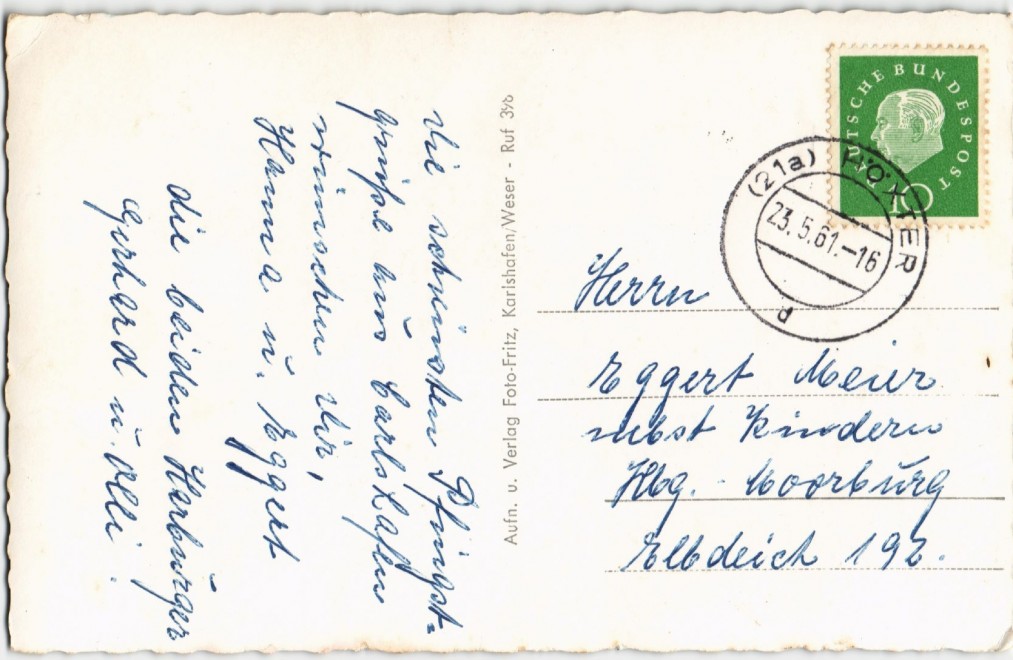 Die schönsten Pfingst-
grüße aus Carlshafen
wünschen Dir,
Hanna u. Eggert
die beiden Harburger
Gerhard u. Olli.
Aufn. u. Verlag Foto-Fritz, Karlshafen/Weser - Ruf 3
DEUTSCHE BUNDESPOST
10
(21a) HÖXTER
23.5.61.-16
d
Herrn
Eggert Meier
nebst Kindern
Hbg. - Moorburg
Elbdeich 192.